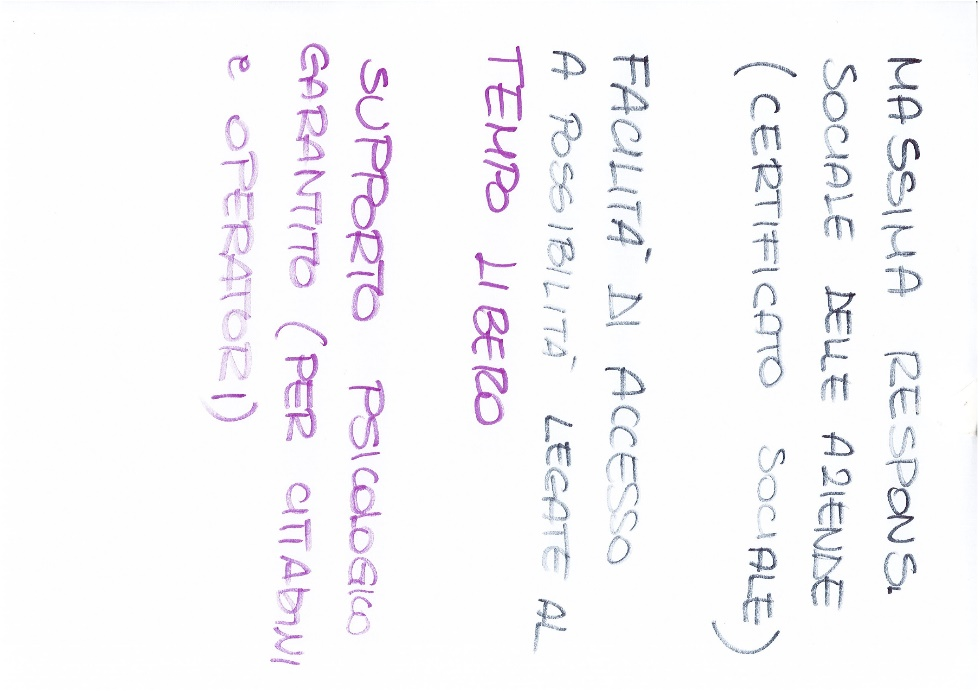 MASSIMA RESPONS.
SOCIALE DELLE AZIENDE
(CERTIFICATO SOCIALE)
FACILITÀ DI ACCESSO
A POSSIBILITÀ LEGATE AL
TEMPO LIBERO
SUPPORTO PSICOLOGICO
GARANTITO (PER CITTADINI
e OPERATORI)